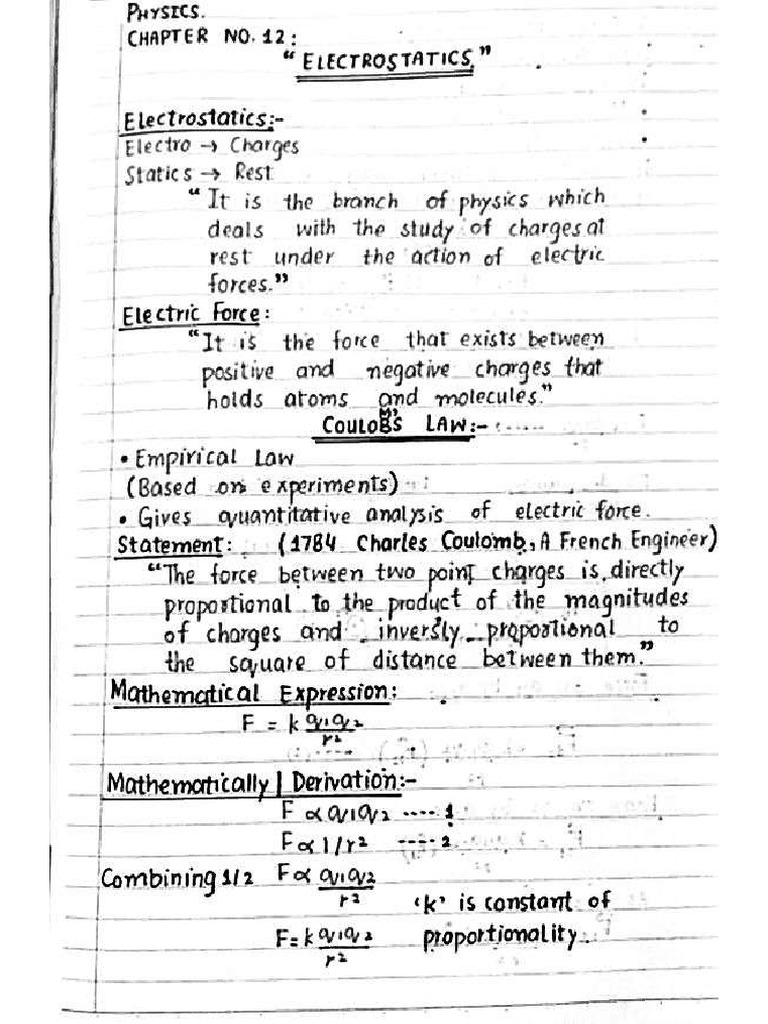 PHYSICS.
CHAPTER NO. 12:
"ELECTROSTATICS."
Electrostatics:-
Electro → Charges
Statics → Rest
"It is the branch of physics which
deals with the study of charges at
rest under the action of electric
forces."
Electric Force:
"It is the force that exists between
positive and negative charges that
holds atoms and molecules."
COULOMB'S LAW:-
• Empirical Law
(Based on experiments)
• Gives quantitative analysis of electric force.
Statement: (1784 Charles Coulomb, A French Engineer)
"The force between two point charges is directly
proportional to the product of the magnitudes
of charges and inversly proportional to
the square of distance between them."
Mathematical Expression:
F = k q₁q₂/r²
Mathematically | Derivation:-
F ∝ q₁q₂ ---- 1
F ∝ 1/r² ---- 2
Combining 1/2 F ∝ q₁q₂/r²
'k' is constant of
F = k q₁q₂/r² proportionality.